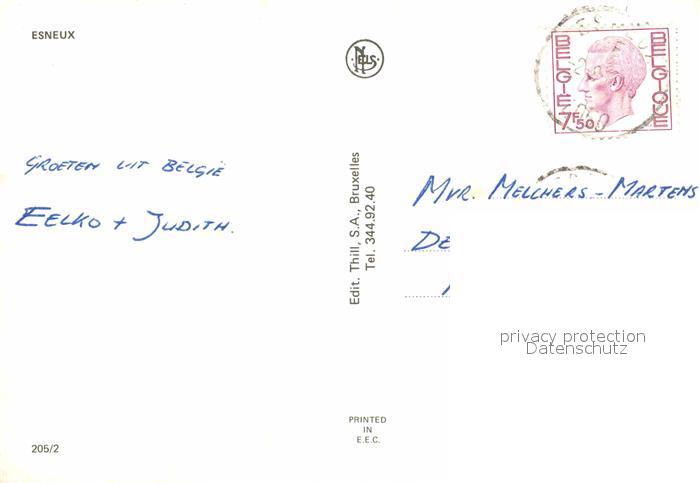 ESNEUX
NELS
BELGIE
BELGIQUE
7F50
GROETEN UIT BELGIË
EELKO + JUDITH.
Edit. Thill, S.A., Bruxelles
Tel. 344.92.40
MVR. MELCHERS - MARTENS
DE
privacy protection
Datenschutz
PRINTED
IN
E.E.C.
205/2